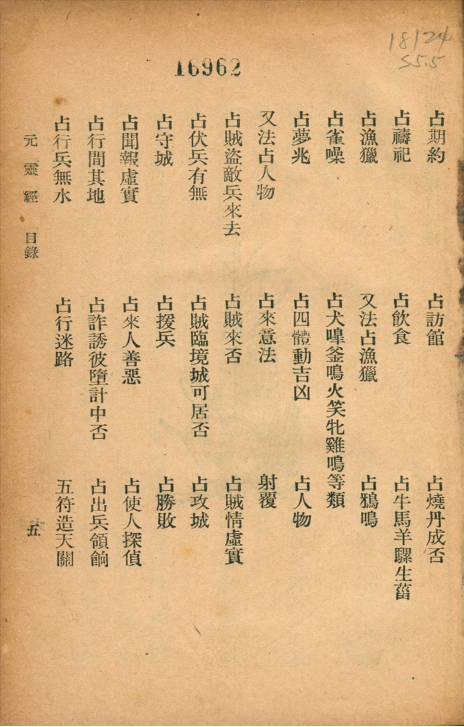 16962
占期約 占訪館 占燒丹成否
占禱祀 占飲食 占牛馬羊騾生菑
占漁獵 又法占漁獵 占鴉鳴
占雀噪 占犬嘷釜鳴火笑牝雞鳴等類
占夢兆 占四體動吉凶 占人物
又法占人物 占來意法 射覆
占賊盜敵兵來去 占賊來否 占賊情虛實
占伏兵有無 占賊臨境城可居否 占攻城
占守城 占援兵 占勝敗
占聞報虛實 占來人善惡 占使人探偵
占行間其地 占詐誘彼墮計中否 占出兵領餉
占行兵無水 占行迷路 五符造天關
元靈經 目錄 五